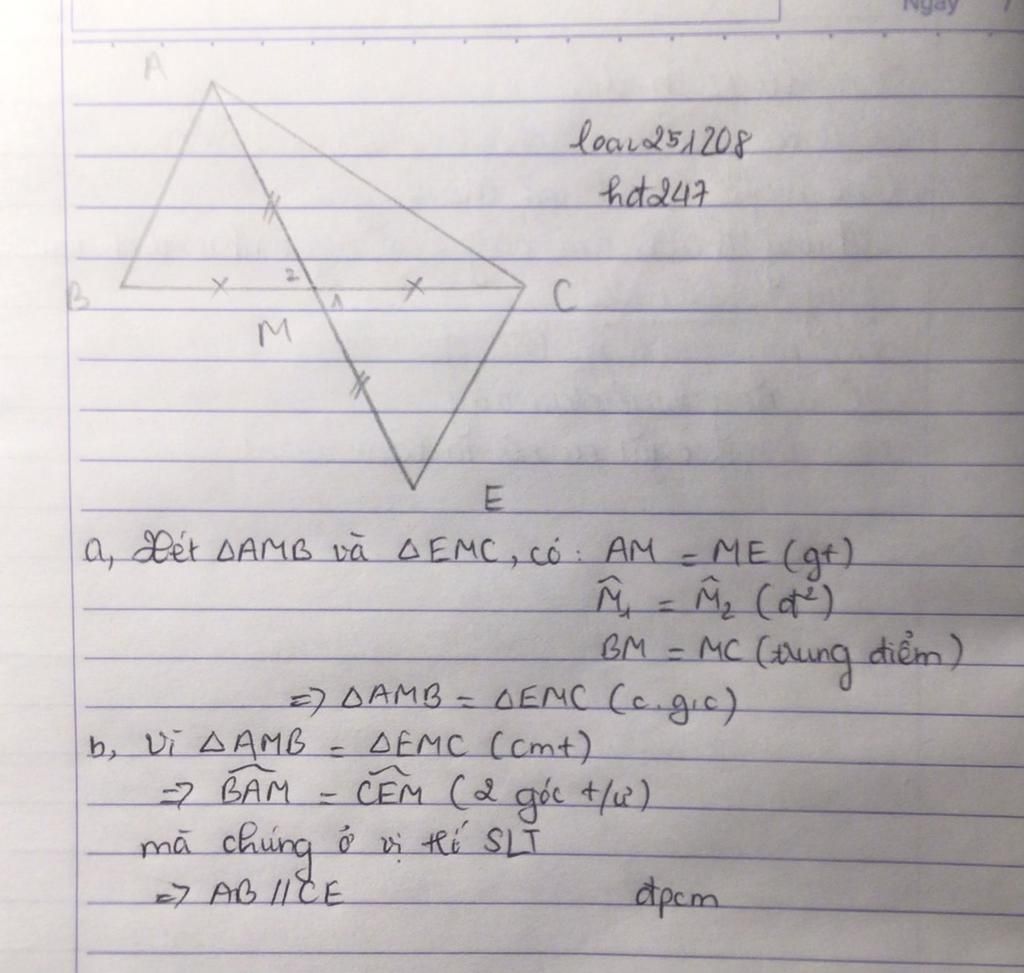 Ngày
A
loan251208
hđ247
2
B
1
C
M
E
a, Xét △AMB và △EMC, có: AM = ME (gt)
M̂₁ = M̂₂ (đ²)
BM = MC (trung điểm)
=> △AMB = △EMC (c.g.c)
b, Vì △AMB = △EMC (cmt)
=> B͡AM = C͡EM (2 góc t/ư)
mà chúng ở vị trí SLT
=> AB // CE đpcm